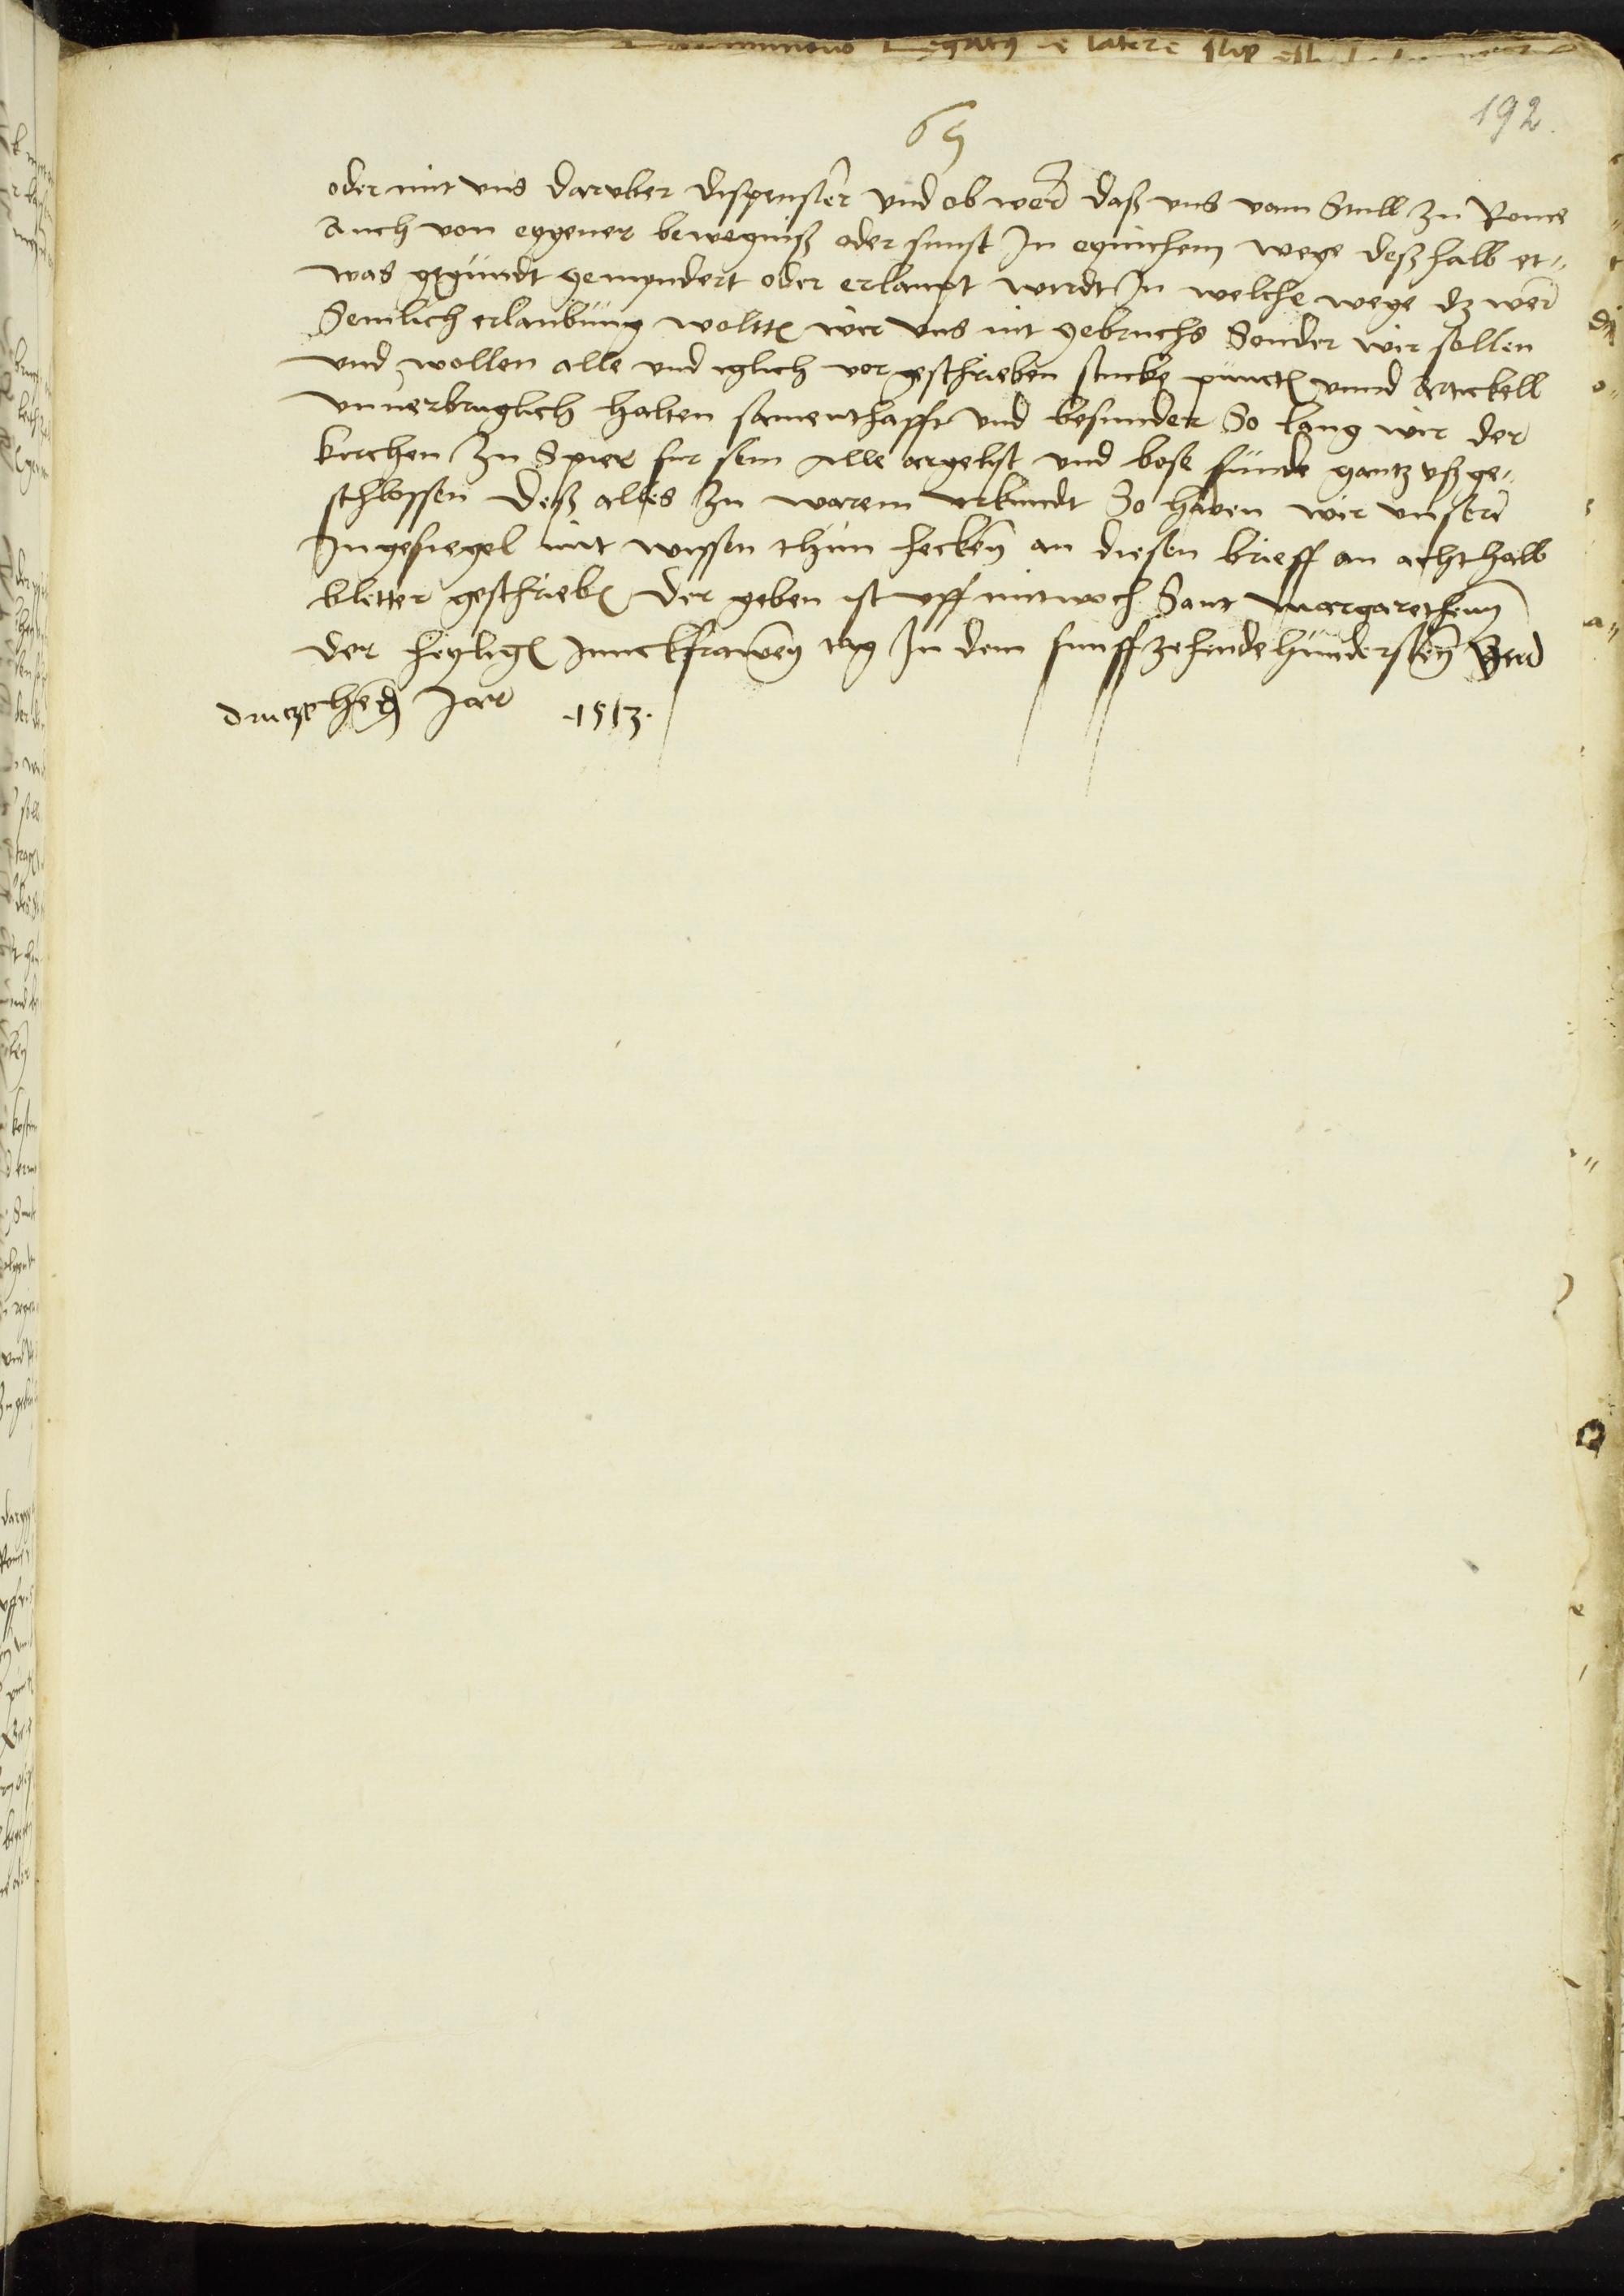 192.
65
oder mit vns daruber dispensier vnd ob wer daß vns vom Stull zu Rome
auch von eygener bewegniß oder sunst In eynichem wege deßhalb et„
was gegundt gemyndert oder erlaupt wurdt In welche wege dz wer
Semlich erlaubung woltten wir vns nit gebruchs Sonder wir sollen
vnd wollen alle vnd iglich vorgeschrieben stucke puncten vnnd Artickell
vnuerbruglich halten samenthafft vnd besunder So lang wir der
kirchen zu Spier fur sein Alle argelist vnd bose funde gantz vßge„
schlossen Deß alles zu warem vrkundt So haben wir vnsere
Ingesiegel mit wissen thun hecken an diesen brieff an acht halb
bletter geschrieben Der geben ist vff mitwoch Sant Margarethen
der heyligen Junckfrawen tag In dem funffzehendehundersten vnd
druczehen Jar .1513.